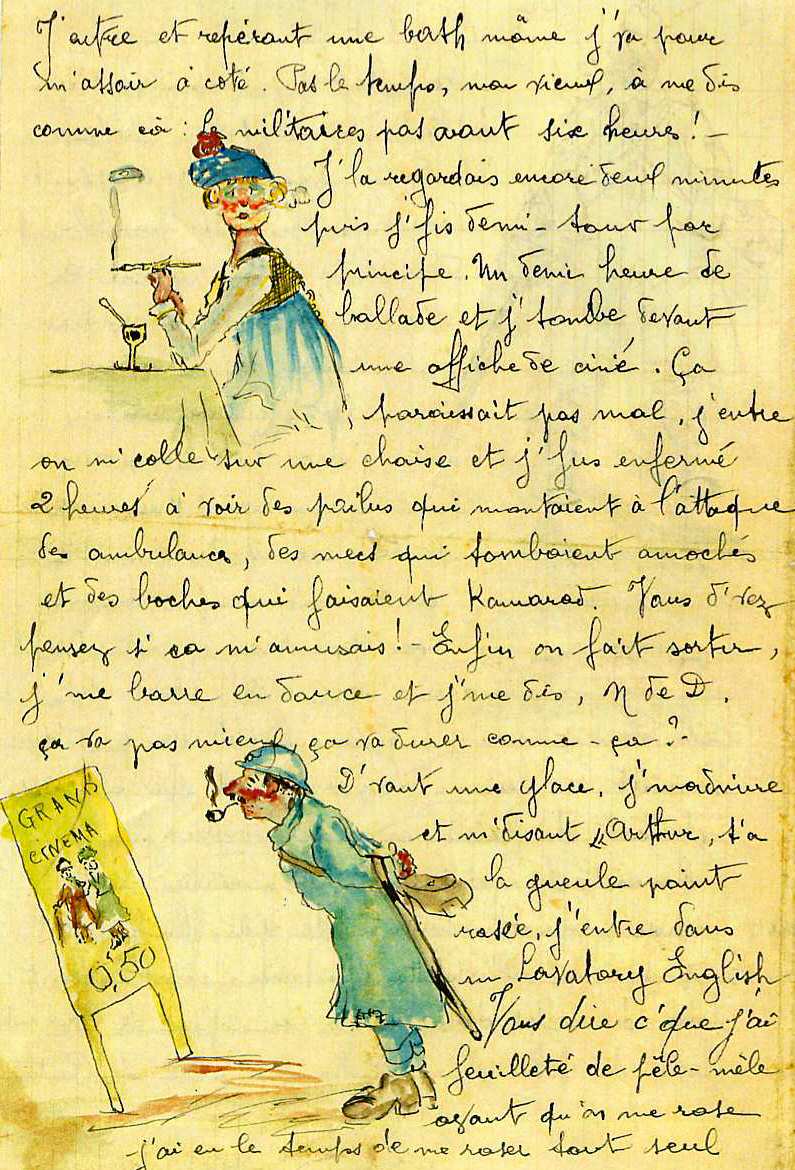 J'entre et repérant une bath môme j'va pour
m'assoir à coté. Pas le temps, mon vieux, à me dis
comme ça : les militaires pas avant six heures ! -
J'la regardais encore deux minutes
puis j'fis demi-tour par
principe. Un demi heure de
ballade et j'tombe devant
une affiche de ciné. Ça
paraissait pas mal, j'entre
on m'colle sur une chaise et j'fus enfermé
2 heures à voir des poilus qui montaient à l'attaque
des ambulances, des mecs qui tombaient amochés
et des boches qui faisaient Kamarad. Vous d'vez
pensez si ça m'amusais ! - Enfin on fait sortir,
j'me barre en douce et j'me dis, N de D.
ça va pas mieux, ça va durer comme-ça ? -
D'vant une glace, j'm'admire
et m'disant "Arthur, t'a
la gueule point
rasée, j'entre dans
un Lavatory English
Vous dire c'que j'ai
feuilleté de pêle-mêle
avant qu'on me rase
j'ai eu le temps de me raser tout seul
GRAND
CINEMA
0,50